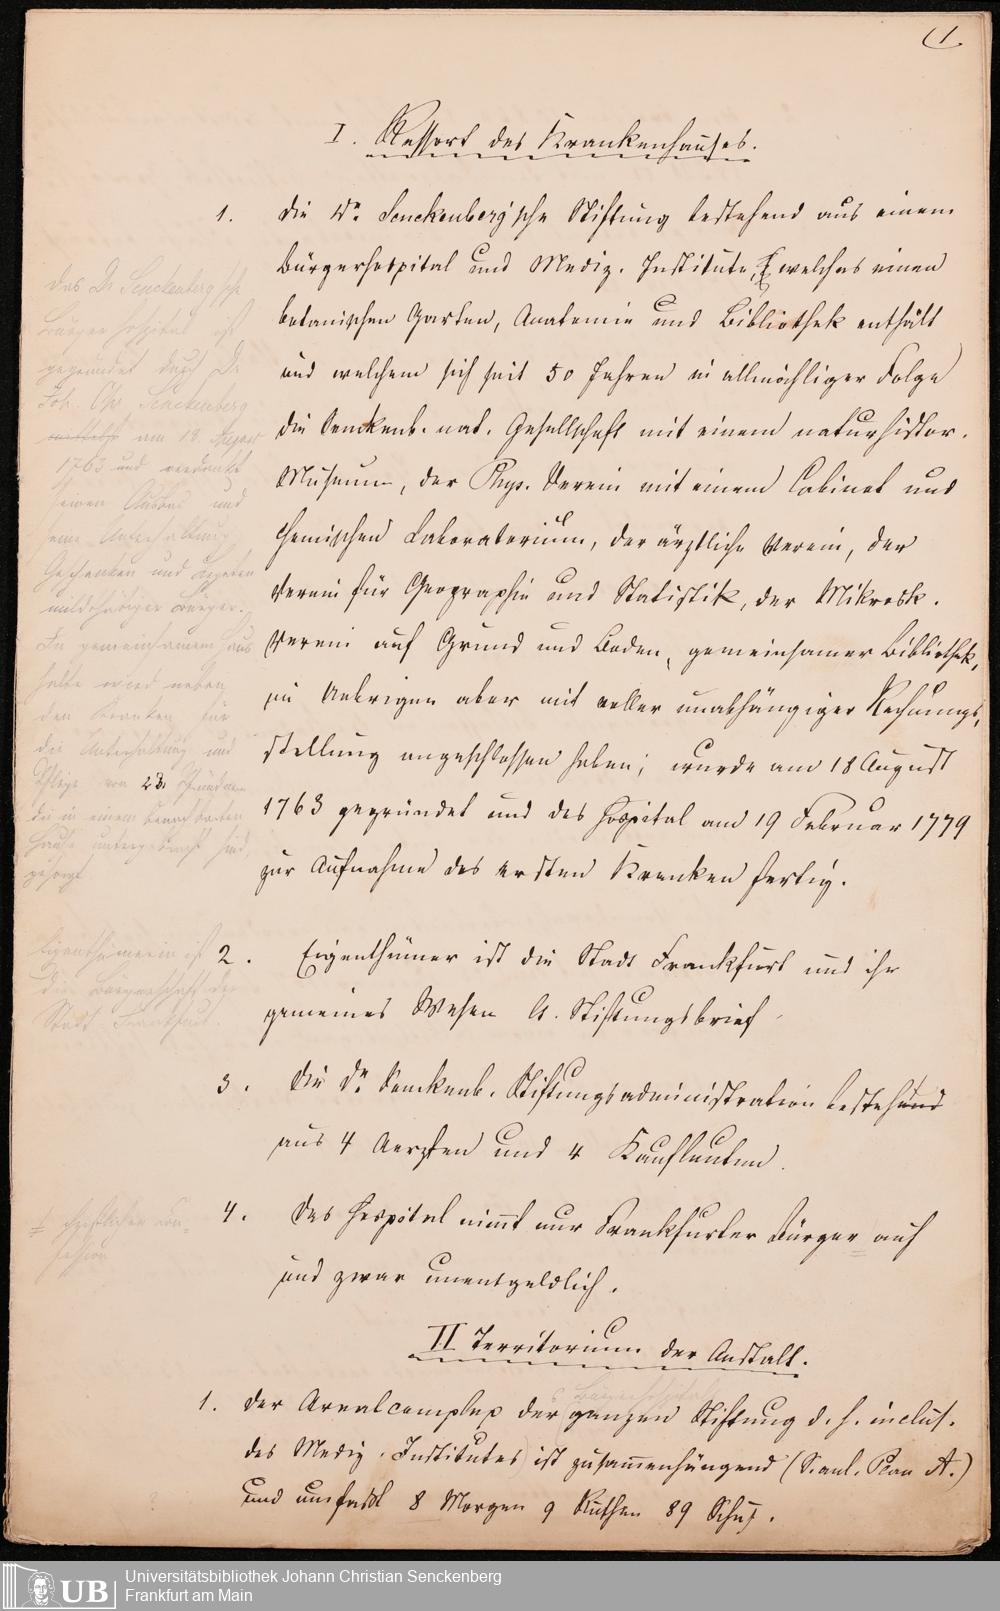 1
I. Ressort des Krankenhauses.
1. Die Dr. Senckenberg'sche Stiftung bestehend aus einem
Bürgerhospital und Mediz. Institute, welches einen
botanischen Garten, Anatomie und Bibliothek enthält
und welchem sich seit 50 Jahren in allmähliger Folge
die Senckenb. nat. Gesellschaft mit einem naturhistor.
Museum, der Phys. Verein mit einem Cabinet und
chemischen Laboratorium, der ärztliche Verein, der
Verein für Geographie und Statistik, der Mikrosk.
Verein auf Grund und Boden, gemeinsamer Bibliothek,
im Uebrigen aber mit voller unabhängiger Rechnungs-
stellung angeschlossen haben; wurde am 18 August
1763 gegründet und das Hospital am 19 Februar 1779
zur Aufnahme des ersten Kranken fertig.
Das Dr Senckenberg'sche
Bürgerhospital ist
gegründet durch Dr
Joh. Chr. Senckenberg
am 18. August
1763 und verdankt
seinen und
seine Unterhaltung
Geschenken und Legaten
mildthätiger Bürger.
Im gemeinsamen Haus
halte wird neben
den Kranken für
die Unterhaltung und
Pflege von 28 Pfründner
die in einem benachbarten
Hause untergebracht sind,
gesorgt
2. Eigenthümer ist die Stadt Frankfurt und ihr
gemeines Wesen cf. Stiftungsbrief
Eigenthümerin ist
die Bürgerschaft der
Stadt Frankfurt
3. Die Dr. Senckenb. Stiftungsadministration besteht
aus 4 Aerzten und 4 Kaufleuten.
4. Das Hospital nimmt nur Frankfurter Bürger auf
und zwar unentgeldlich.
christlicher Con-
fession
II Territorium der Anstalt.
Bürgerhospitals
1. Der Arealcomplex der ganzen Stiftung d. h. inclus.
des Mediz. Institutes ist zusammenhängend (S. anl. Plan A.)
und umfaßt 8 Morgen 9 Ruthen 89 Schuh.
UB
Universitätsbibliothek Johann Christian Senckenberg
Frankfurt am Main